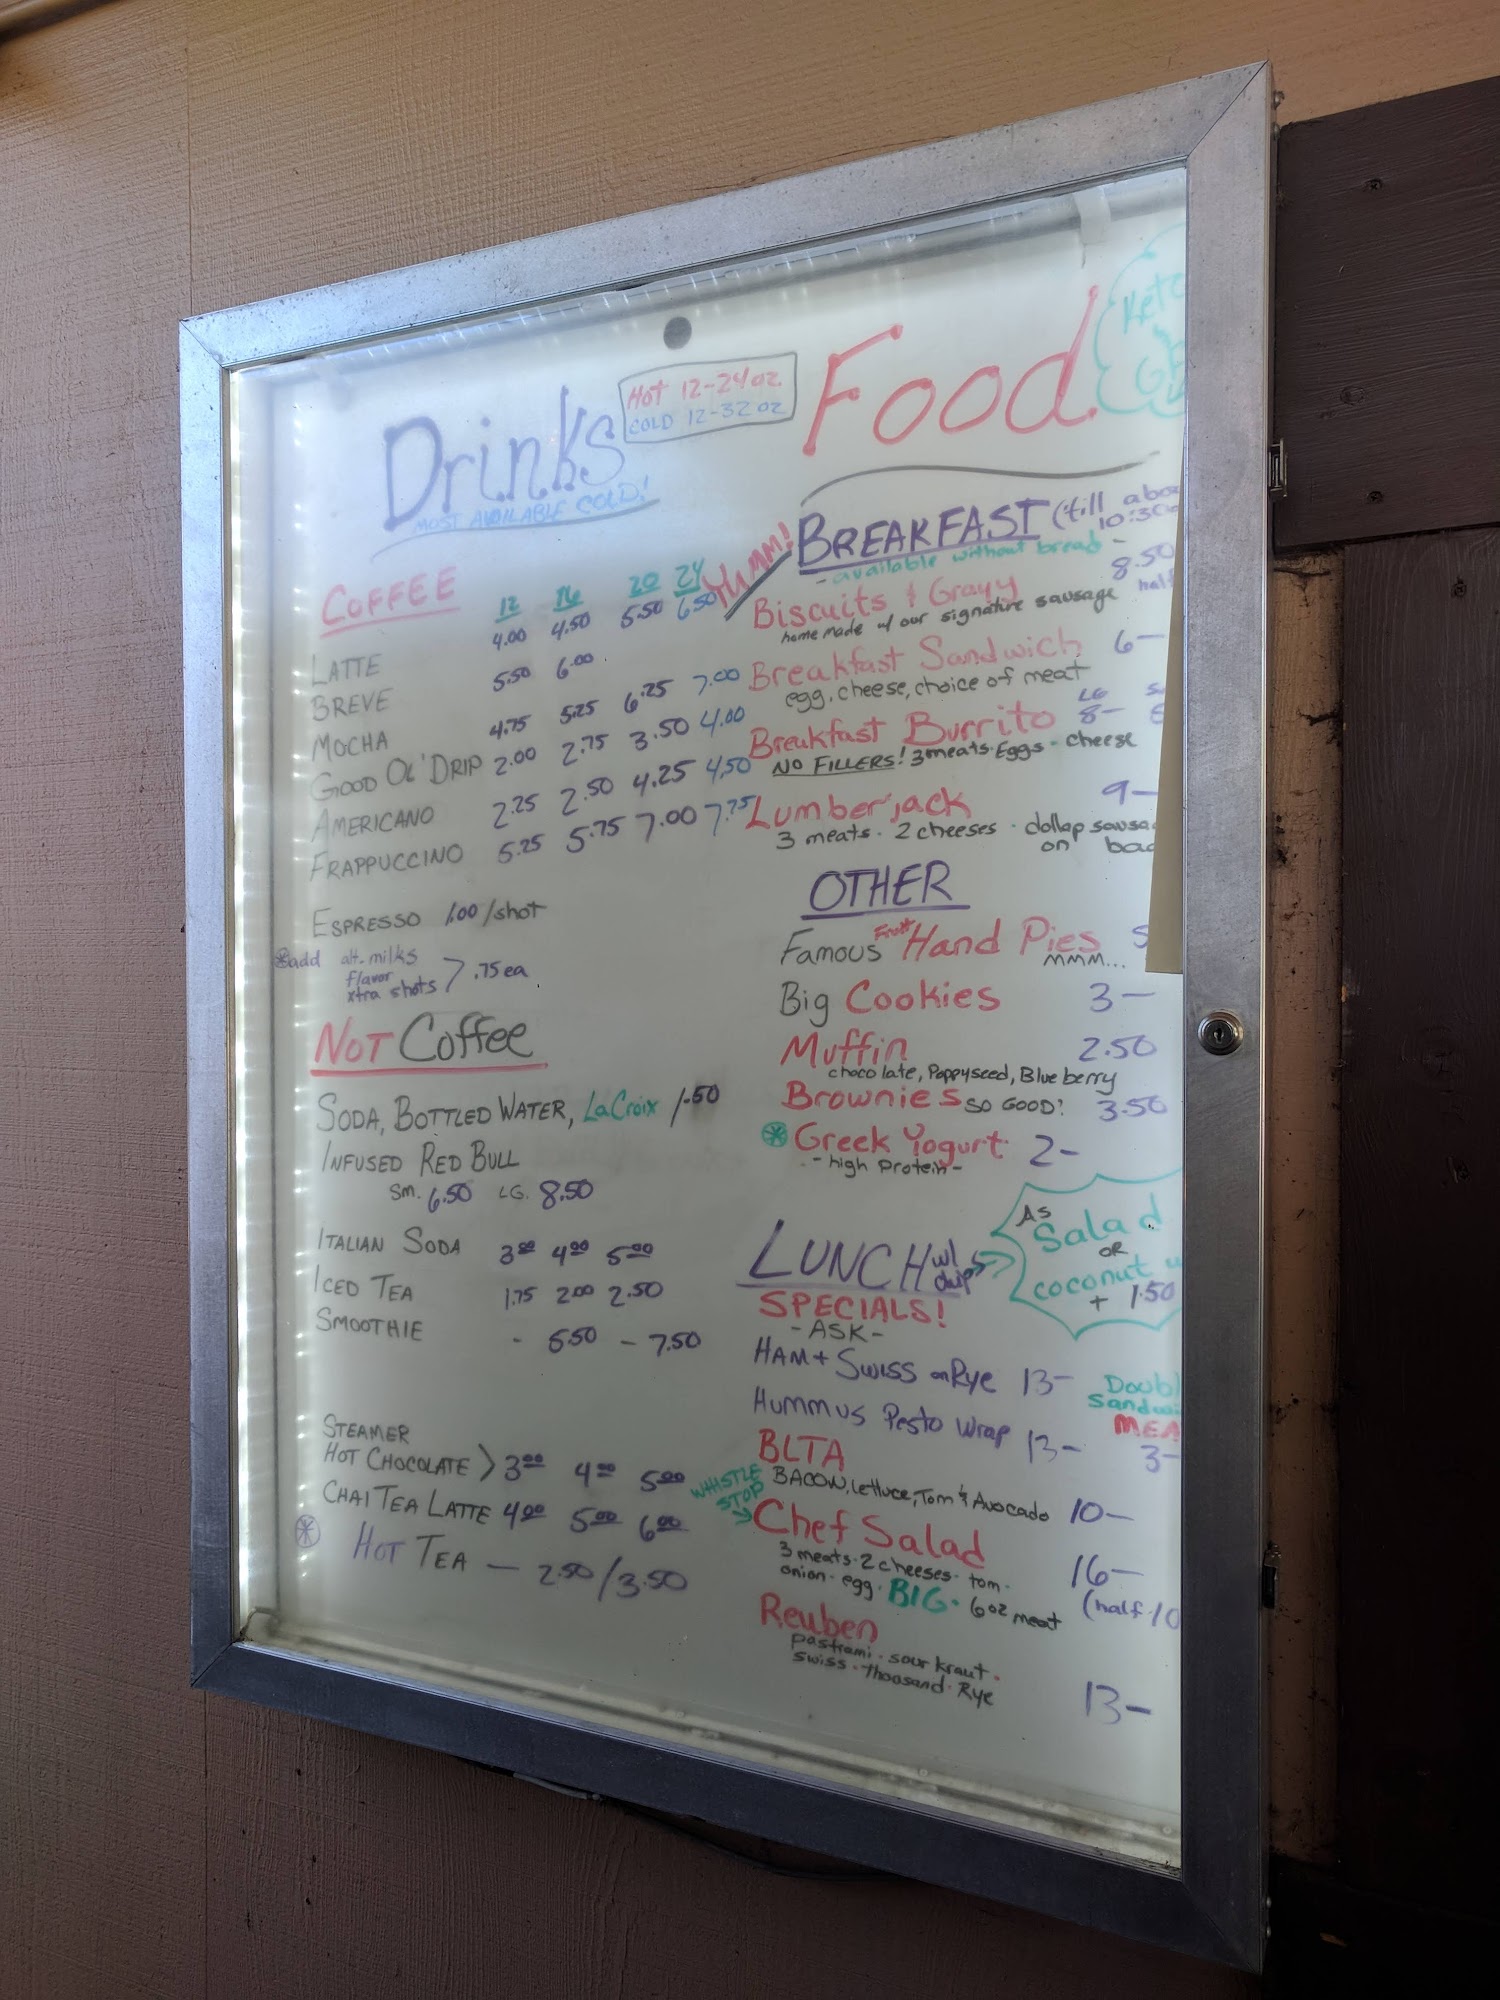 Drinks
MOST AVAILABLE COLD!
HOT 12-24oz.
COLD 12-32oz
COFFEE
12 16 20 24
4.00 4.50 5.50 6.50
LATTE
5.50 6.00
BREVE
4.75 5.25 6.25 7.00
MOCHA
2.00 2.75 3.50 4.00
GOOD OL' DRIP
2.25 2.50 4.25 4.50
AMERICANO
5.25 5.75 7.00 7.75
FRAPPUCCINO
ESPRESSO 1.00/shot
*add alt. milks
flavor
xtra shots > .75 ea
NOT Coffee
SODA, BOTTLED WATER, LaCroix 1.50
INFUSED RED BULL
SM. 6.50 LG. 8.50
ITALIAN SODA 3.00 4.00 5.00
ICED TEA 1.75 2.00 2.50
SMOOTHIE - 5.50 - 7.50
STEAMER
HOT CHOCOLATE > 3.00 4.00 5.00
CHAI TEA LATTE 4.00 5.00 6.00
* HOT TEA — 2.50/3.50
Food
YUMM!
BREAKFAST ('till
10:30
- available without bread -
Biscuits & Gravy 8.50
homemade w/ our signature sausage half
Breakfast Sandwich 6—
egg, cheese, choice of meat
LG
Breakfast Burrito 8—
NO FILLERS! 3 meats · Eggs - cheese
Lumberjack 9—
3 meats · 2 cheeses · dollop
on
OTHER
Famous Fruit Hand Pies
MMM...
Big Cookies 3—
Muffin 2.50
chocolate, Poppyseed, Blueberry
Brownies SO GOOD! 3.50
* Greek Yogurt 2-
- high protein -
LUNCH w/ chips
As
Salad
OR
coconut
+ 1.50
SPECIALS!
-ASK-
HAM + SWISS on Rye 13-
HUMMUS Pesto Wrap 13-
3-
BLTA
BACON, Lettuce, Tom & Avocado 10—
WHISTLE
STOP
Chef Salad 16—
3 meats · 2 cheeses · tom ·
onion · egg · BIG · 6oz meat (half · 10
Reuben
pastrami · sour kraut ·
swiss · thousand · Rye 13—